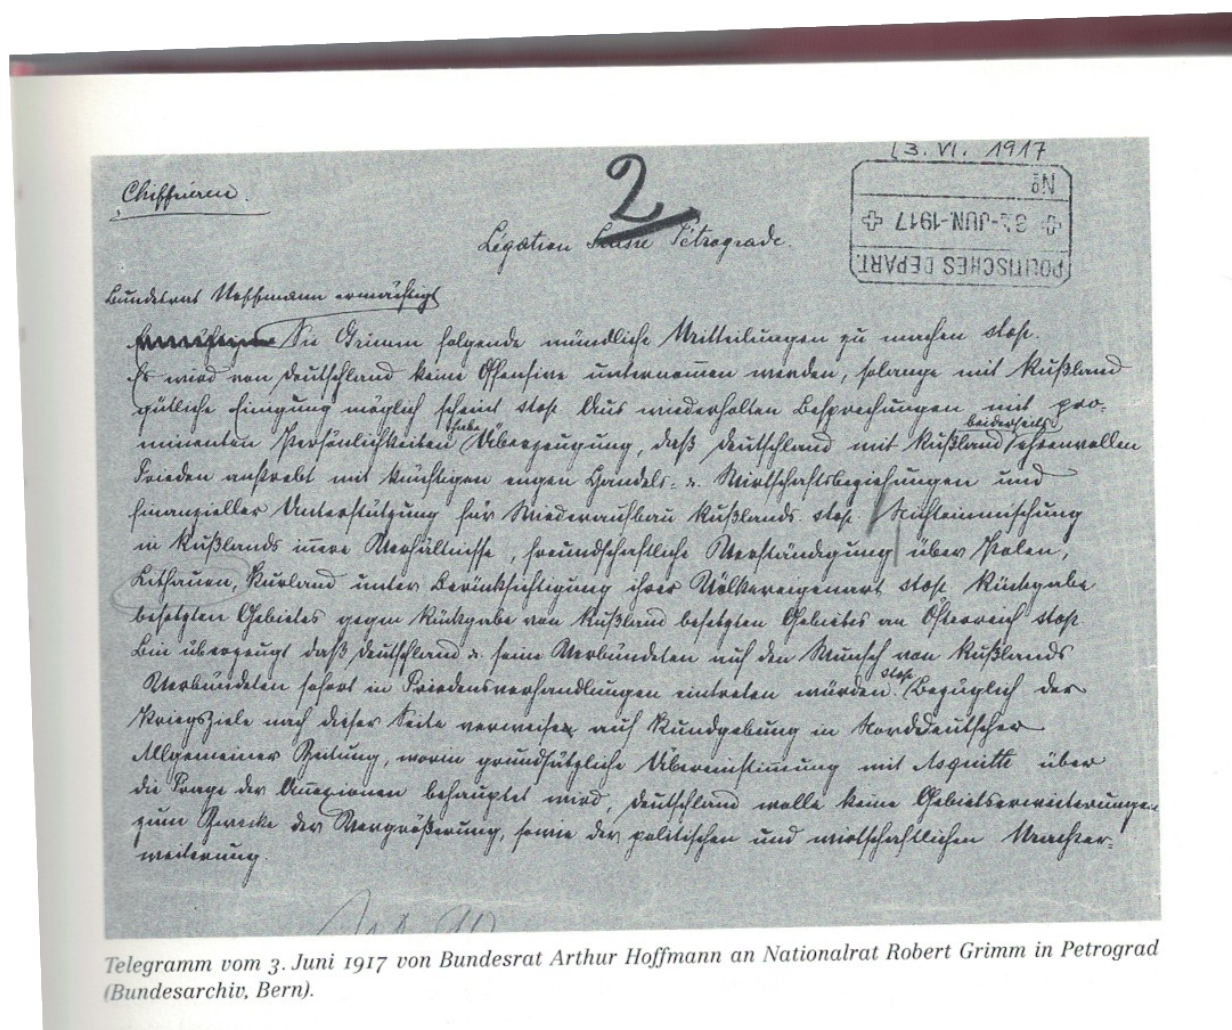 13. VI. 1917
Nº
+ 3. JUN. 1917 +
POLITISCHES DEPART.
Chiffrieren.
2
Légation Suisse Pétrograde.
Bundesrat Hoffmann ermächtigt
Ermächtigen Sie Grimm folgende mündliche Mitteilungen zu machen stop.
Es wird von Deutschland keine Offensive unternommen werden, solange mit Rußland
gütliche Einigung möglich scheint stop. Aus wiederholten Besprechungen mit pro-
minenten Persönlichkeiten habe Überzeugung, daß Deutschland mit Rußland beiderseits ehrenvollen
Frieden anstrebt mit künftigen engen Handels- u. Wirtschaftsbeziehungen und
finanzieller Unterstützung für Wiederaufbau Rußlands. stop Nichteinmischung
in Rußlands innere Verhältnisse, freundschaftliche Verständigung über Polen,
Lithauen, Kurland unter Berücksichtigung ihrer Völkereigenart stop. Rückgabe
besetzten Gebietes gegen Rückgabe von Rußland besetzten Gebietes an Österreich stop
Bin überzeugt daß Deutschland u. seine Verbündeten auf den Wunsch von Rußlands
Verbündeten sofort in Friedensverhandlungen eintreten würden. stop Bezüglich der
Kriegsziele nach dieser Seite verweisen auf Kundgebung in Norddeutscher
Allgemeiner Zeitung, worin grundsätzliche Übereinstimmung mit Asquith über
die Frage der Annexionen behauptet wird, Deutschland wolle keine Gebietserweiterungen
zum Zwecke der Vergrößerung, sowie der politischen und wirtschaftlichen Machter-
weiterung.
Telegramm vom 3. Juni 1917 von Bundesrat Arthur Hoffmann an Nationalrat Robert Grimm in Petrograd
(Bundesarchiv, Bern).